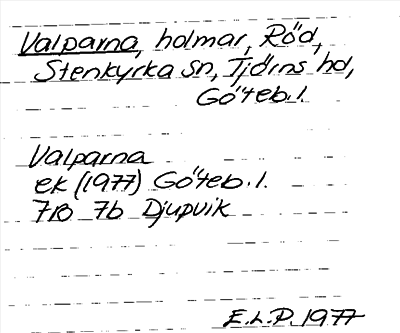 Valparna, holmar, Röd,
Stenkyrka sn, Tjörns hd,
Göteb. l.
Valparna
ek (1977) Göteb. l.
7B 7b Djupvik
E.L.P 1977